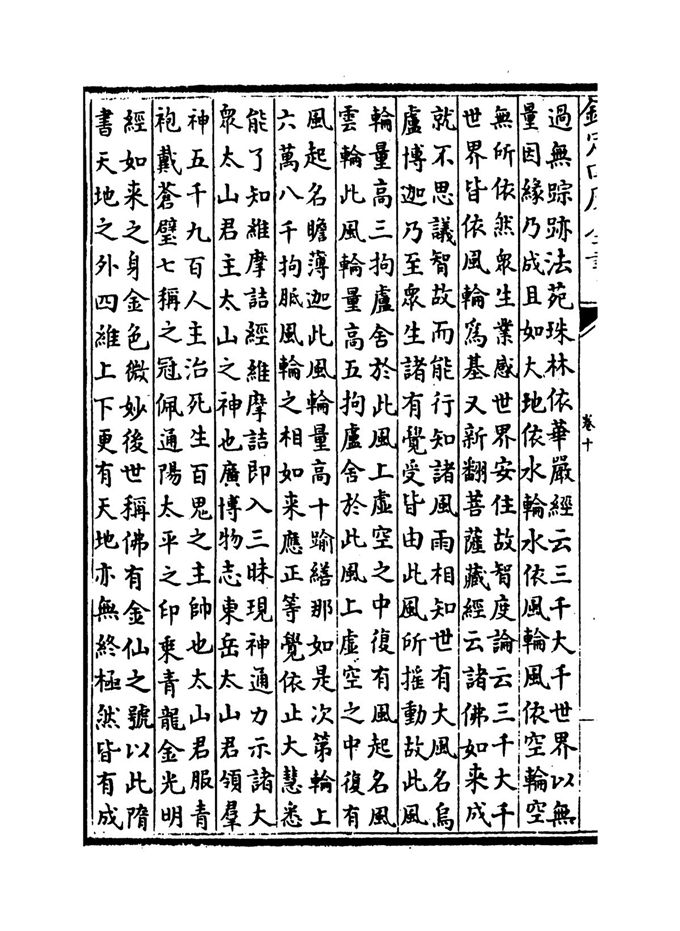 欽定四庫全書
卷十
過無踪跡法苑珠林依華嚴經云三千大千世界以無
量因緣乃成且如大地依水輪水依風輪風依空輪空
無所依然衆生業感世界安住故智度論云三千大千
世界皆依風輪為基又新翻菩薩藏經云諸佛如来成
就不思議智故而能行知諸風雨相知世有大風名烏
盧博迦乃至衆生諸有覺受皆由此風所摇動故此風
輪量高三拘盧舍於此風上虚空之中復有風起名風
雲輪此風輪量高五拘盧舍於此風上虚空之中復有
風起名瞻薄迦此風輪量高十踰繕那如是次第輪上
六萬八千拘胝風輪之相如来應正等覺依止大慧悉
能了知維摩詰經維摩詰即入三昧現神通力示諸大
衆太山君主太山之神也廣博物志東岳太山君領羣
神五千九百人主治死生百鬼之主帥也太山君服青
袍戴蒼璧七稱之冠佩通陽太平之印乘青龍金光明
經如来之身金色微妙後世稱佛有金仙之號以此隋
書天地之外四維上下更有天地亦無終極然皆有成